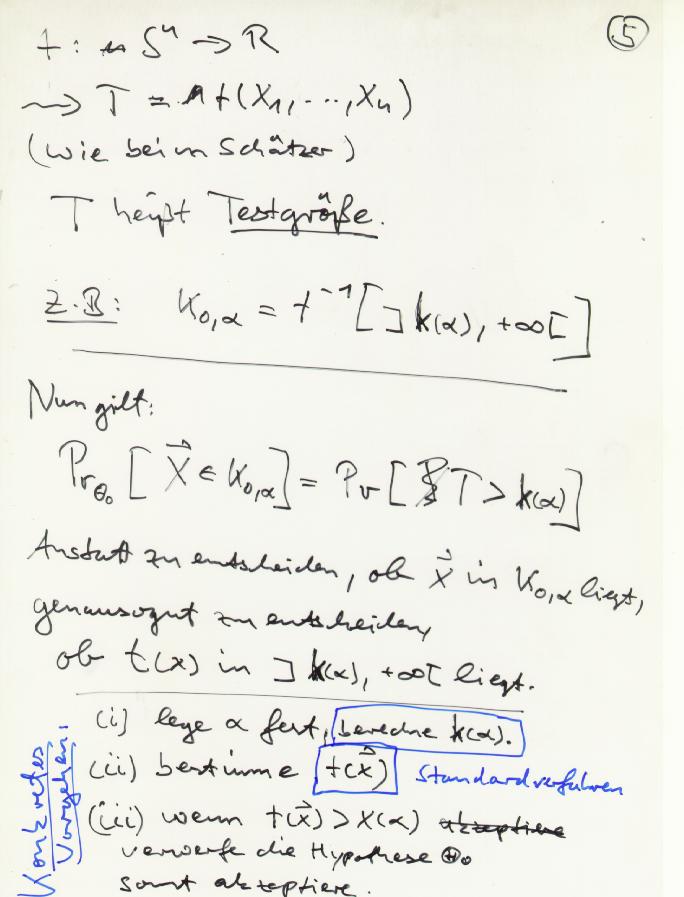 ⑤
t : S^n → ℝ
⤳ T = t(X₁, ..., Xₙ)
(wie beim Schätzer)
T heißt Testgröße.
z.B: K₀,α = t⁻¹[]k(α), +∞[]
Nun gilt:
Pr_θ₀ [X⃗ ∈ K₀,α] = Pr [T > k(α)]
Anstatt zu entscheiden, ob x⃗ in K₀,α liegt,
genausogut zu entscheiden,
ob t(x) in ]k(α), +∞[ liegt.
Konkretes Vorgehen:
(i) lege α fest, berechne k(α).
(ii) bestimme t(x⃗) Standardverfahren
(iii) wenn t(x⃗) > K(α) akzeptiere
verwerfe die Hypothese Θ₀
sonst akzeptiere.